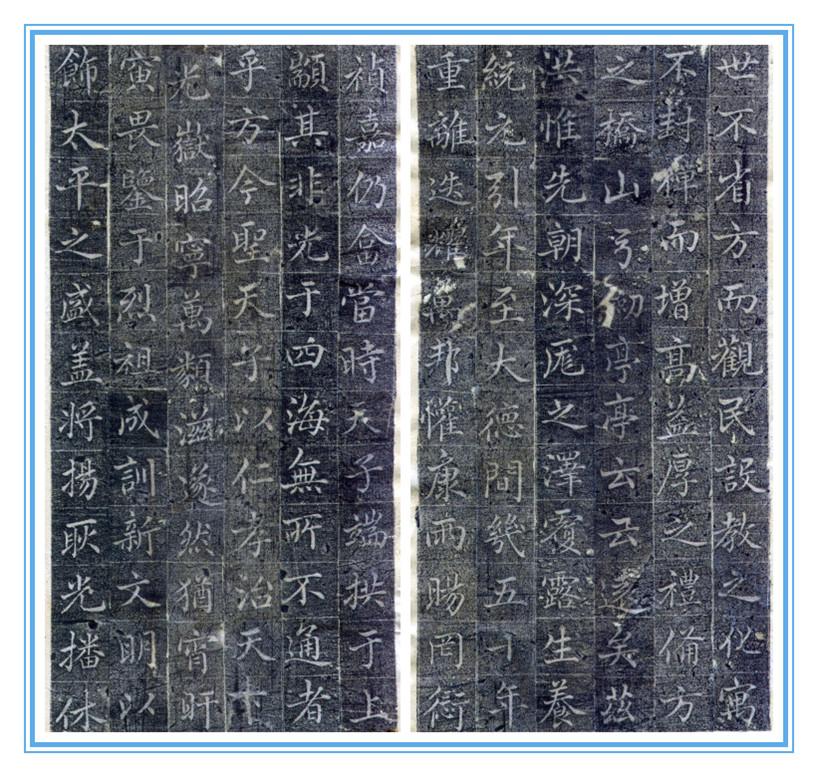 世不省方而觀民設教之化寓
不封禪而增高益厚之禮俻方
之橋山弓亭亭云云遠矣茲
洪惟先朝深厖之澤覆露生養
統元引年至大德間幾五十年
重離迭耀萬邦懽康雨暘罔愆
禎嘉仍畣當時天子端拱于上
顒其非光于四海無所不通者
乎方今聖天子以仁孝治天下
光嶽昭寧萬類滋遂然猶宵旰
寅畏鑒于烈祖成訓新文明以
飾太平之盛盖將揚耿光播休